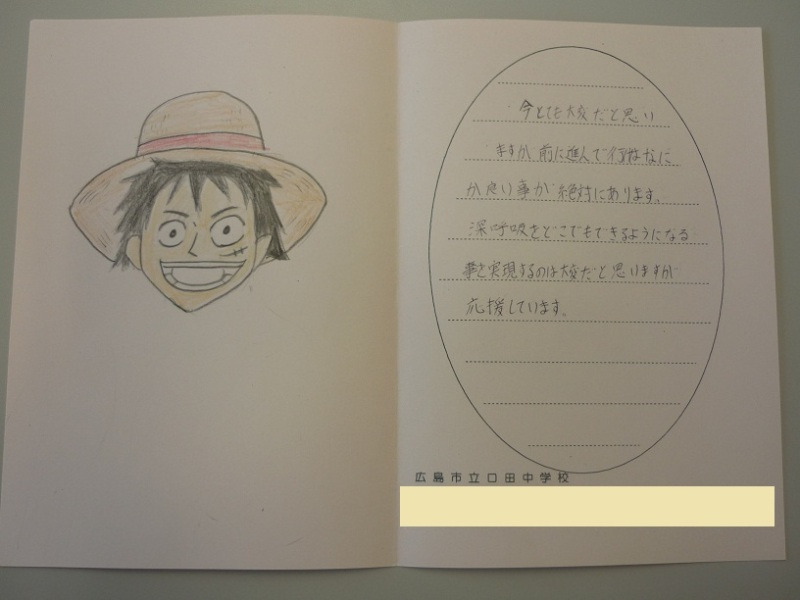 今とても大変だと思い
ますが前に進んで行けばなに
か良い事が絶対にあります。
深呼吸をどこでもできるようになる
事を実現するのは大変だと思いますが
応援しています。
広島市立口田中学校